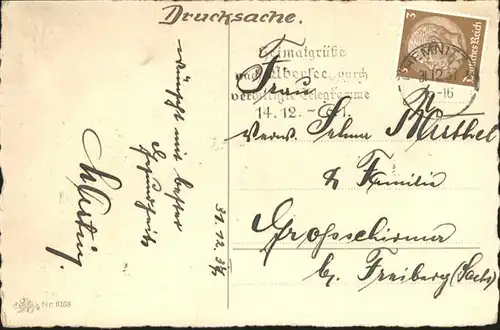 Drucksache.
wünscht mit bester
Gesundheit
31.12.34
Nr. 6168
Heimatgrüße
nach Übersee durch
verbilligte Telegramme
14.12. – 6.1.
CHEMNITZ
31.12.
-16
3
Deutsches Reich
Frau
verw. Selma Müthel
& Familie
Grossschirma
b. Freiberg (Sachs)